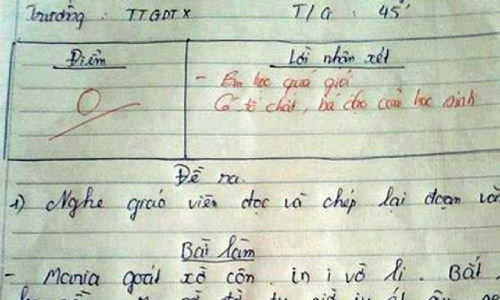 Trường : TTGDTX T/G : 45'
Điểm Lời nhận xét
0 - Em học quá giỏi
Có tố chất, bá đạo của học sinh
Đề ra
1) Nghe giáo viên đọc và chép lại đoạn văn
Bài làm
- Maria goát xờ côn. in i vờ li. Bát